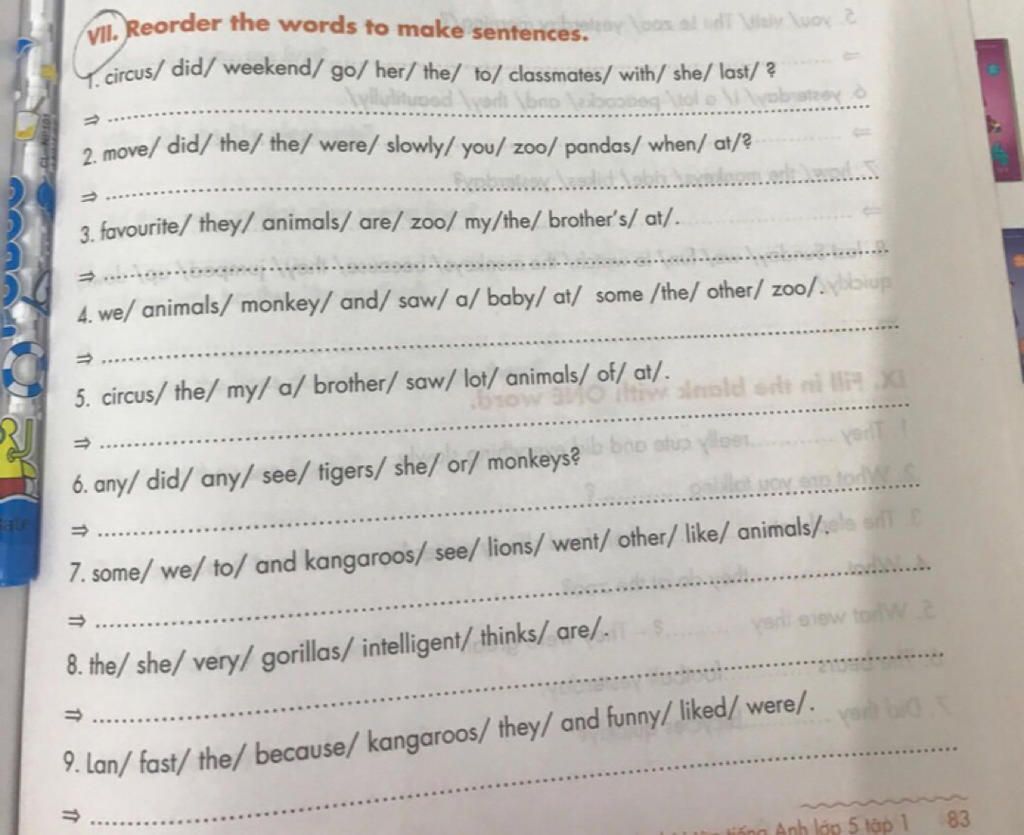 VII. Reorder the words to make sentences.
1. circus/ did/ weekend/ go/ her/ the/ to/ classmates/ with/ she/ last/ ?
⇒
2. move/ did/ the/ the/ were/ slowly/ you/ zoo/ pandas/ when/ at/?
⇒
3. favourite/ they/ animals/ are/ zoo/ my/the/ brother's/ at/.
⇒
4. we/ animals/ monkey/ and/ saw/ a/ baby/ at/ some /the/ other/ zoo/.
⇒
5. circus/ the/ my/ a/ brother/ saw/ lot/ animals/ of/ at/.
⇒
6. any/ did/ any/ see/ tigers/ she/ or/ monkeys?
⇒
7. some/ we/ to/ and kangaroos/ see/ lions/ went/ other/ like/ animals/.
⇒
8. the/ she/ very/ gorillas/ intelligent/ thinks/ are/.
⇒
9. Lan/ fast/ the/ because/ kangaroos/ they/ and funny/ liked/ were/.
⇒
tiếng Anh lớp 5 tập 1 83